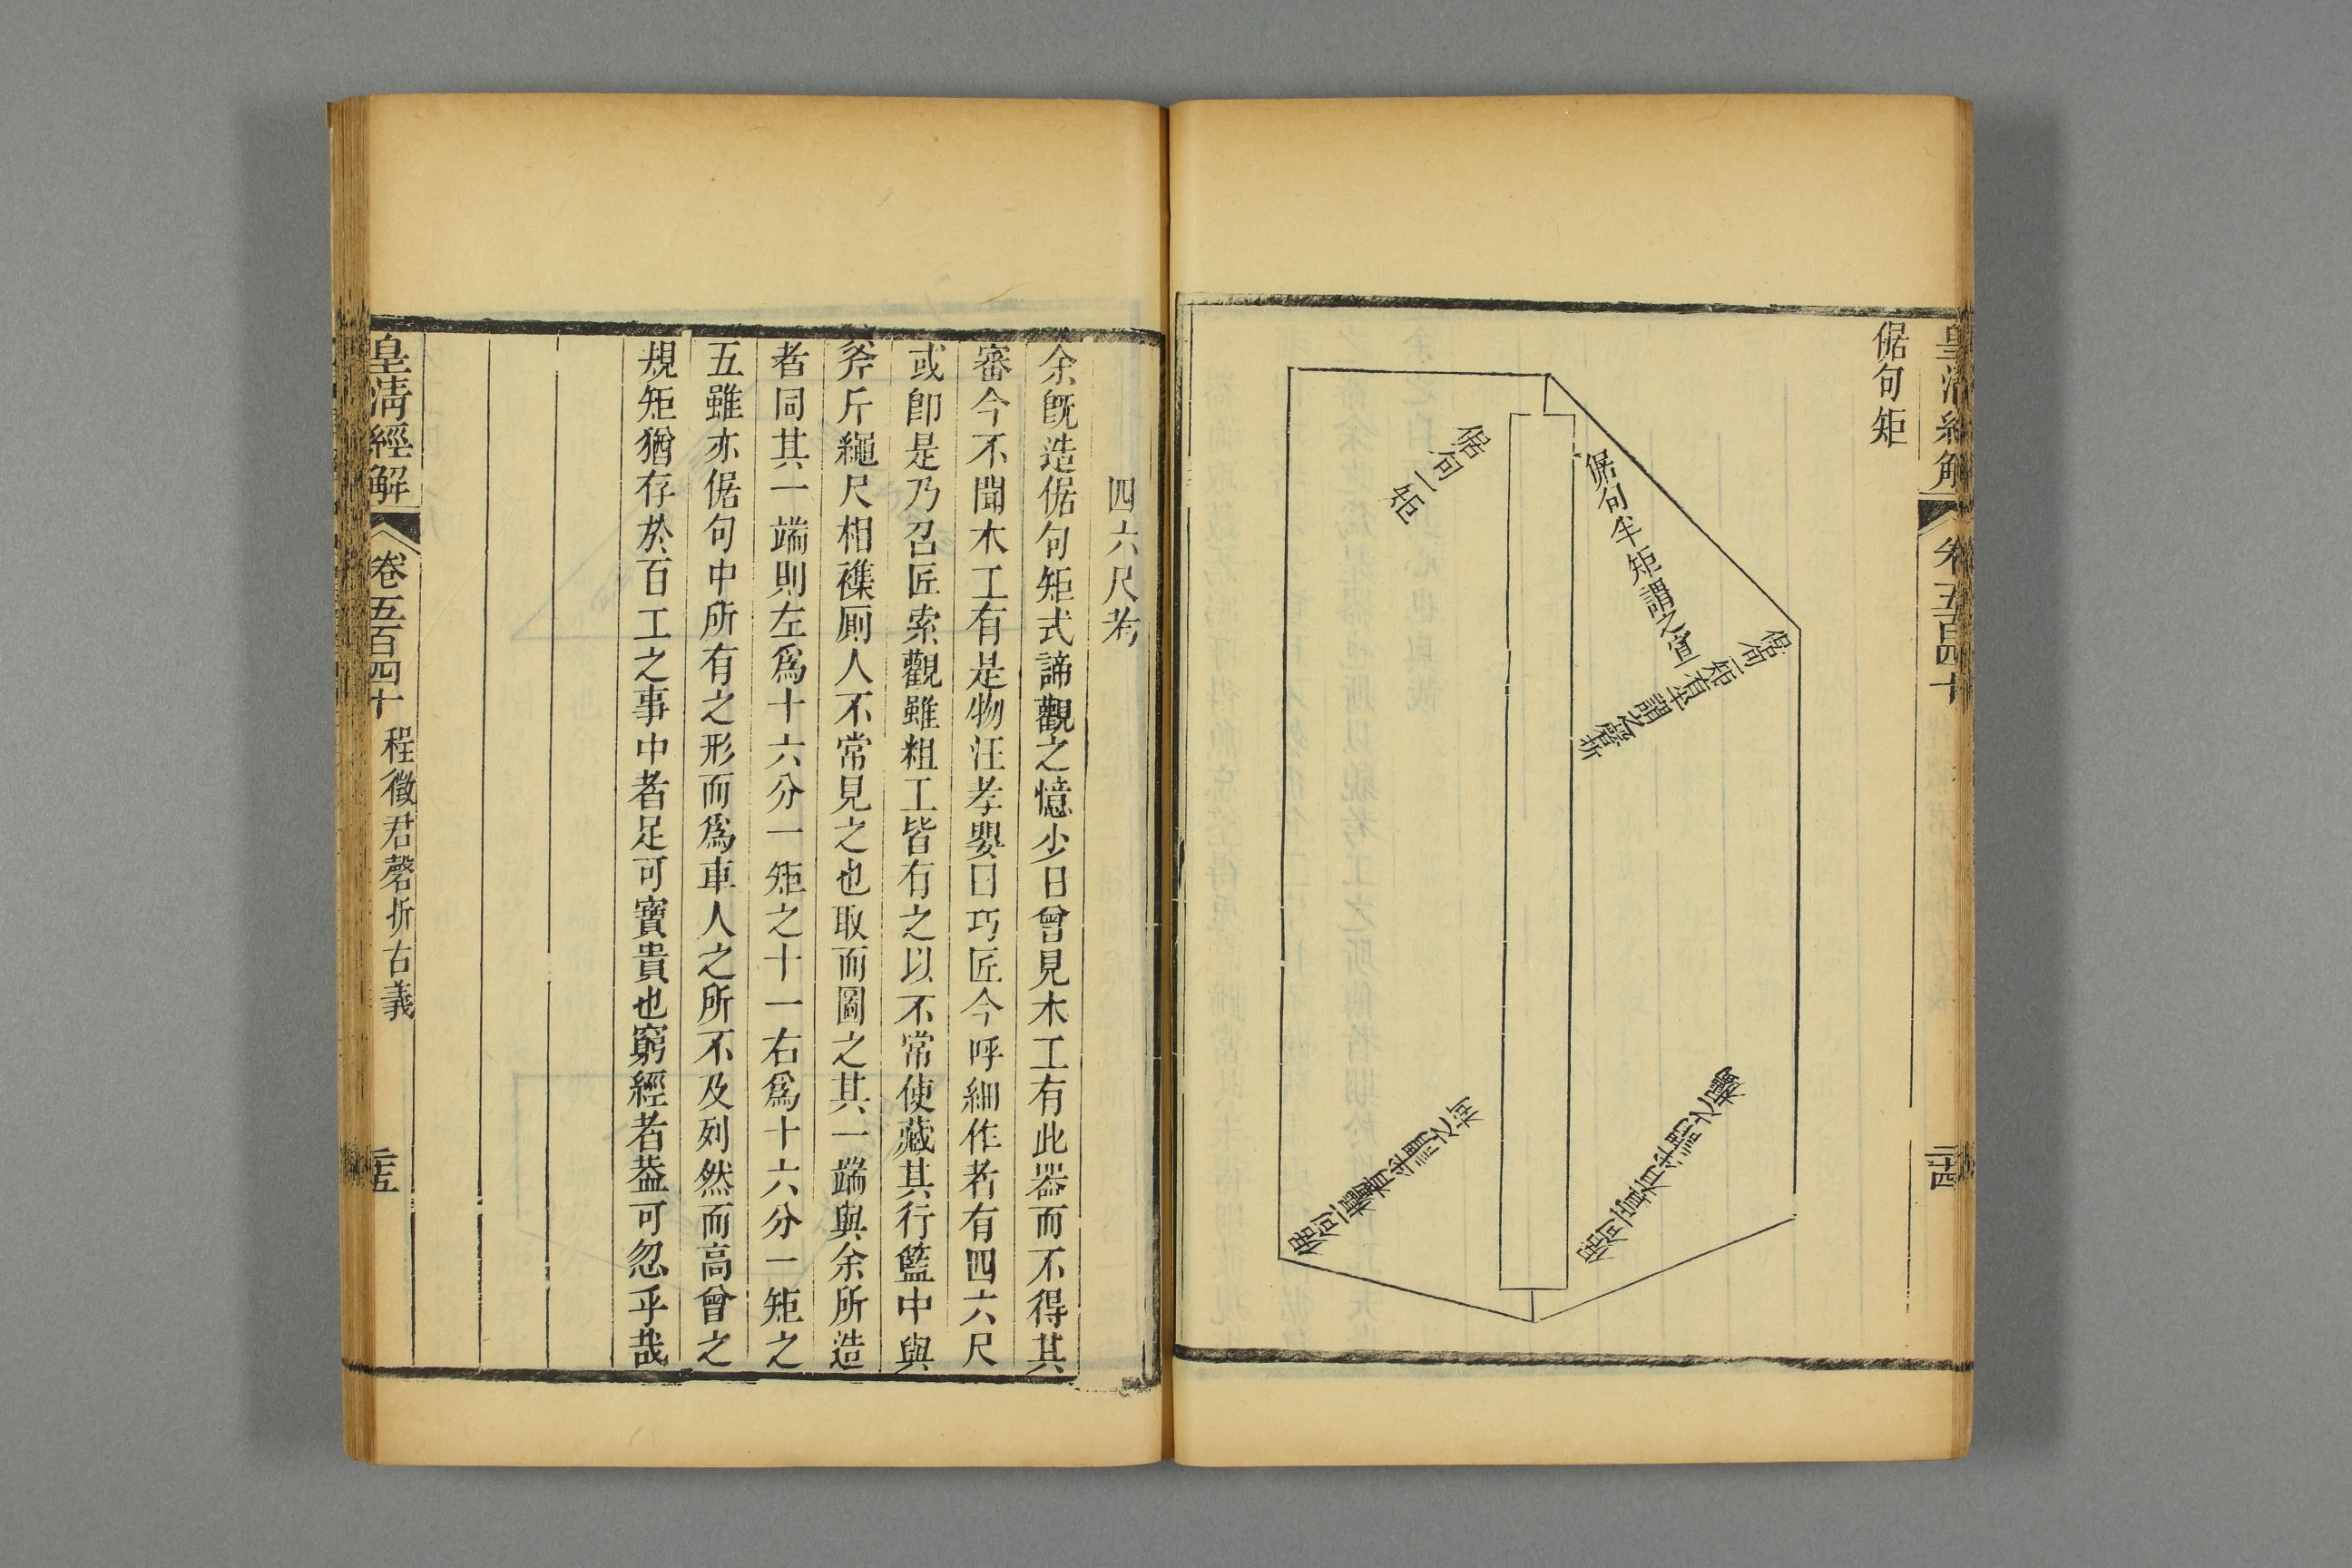 皇清經解
卷五百四十
二十四
倨句矩
倨句一矩
倨句半矩謂之宣
倨句一矩有半謂之磬折
倨句一宣有半謂之欘
倨句一欘有半謂之柯
四六尺考
余旣造倨句矩式諦觀之憶少日曾見木工有此器而不得其
審今不聞木工有是物汪孝嬰曰巧匠今呼細作者有四六尺
或卽是乃召匠索觀雖粗工皆有之以不常使藏其行籃中與
斧斤繩尺相襍厠人不常見之也取而圖之其一端與余所造
者同其一端則左爲十六分一矩之十一右爲十六分一矩之
五雖亦倨句中所有之形而爲車人之所不及列然而高曾之
規矩猶存於百工之事中者足可寶貴也窮經者葢可忽乎哉
皇清經解
卷五百四十
程徵君磬折古義
二十五